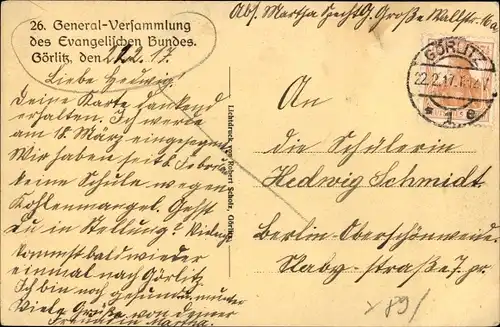 26. General-Versammlung
des Evangelischen Bundes.
Görlitz, den 22.2.17.
Liebe Hedwig!
Deine Karte dankend
erhalten. Ich werde
am 18. März eingesegnet.
Wir haben seit 6. Febr.
keine Schule wegen
Kohlenmangel. Gehst
Du in Stellung?
kommst bald wieder
einmal nach Görlitz.
Ich bin noch gesund u. munter
Viele Grüße von deiner
Freundin Martha.
Lichtdruck von Robert Scholz, Görlitz.
Abs. Martha Hecht G. Große Wallstr.
GÖRLITZ
22.2.17.
* 1 e
An
die Schülerin
Hedwig Schmidt
Berlin-Oberschöneweide
straße 7. pr.
89/